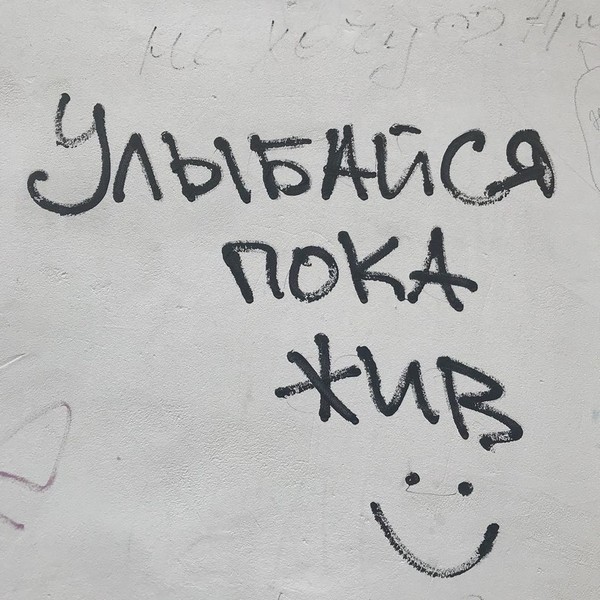 не хочу
УЛЫБАЙСЯ
ПОКА
ЖИВ